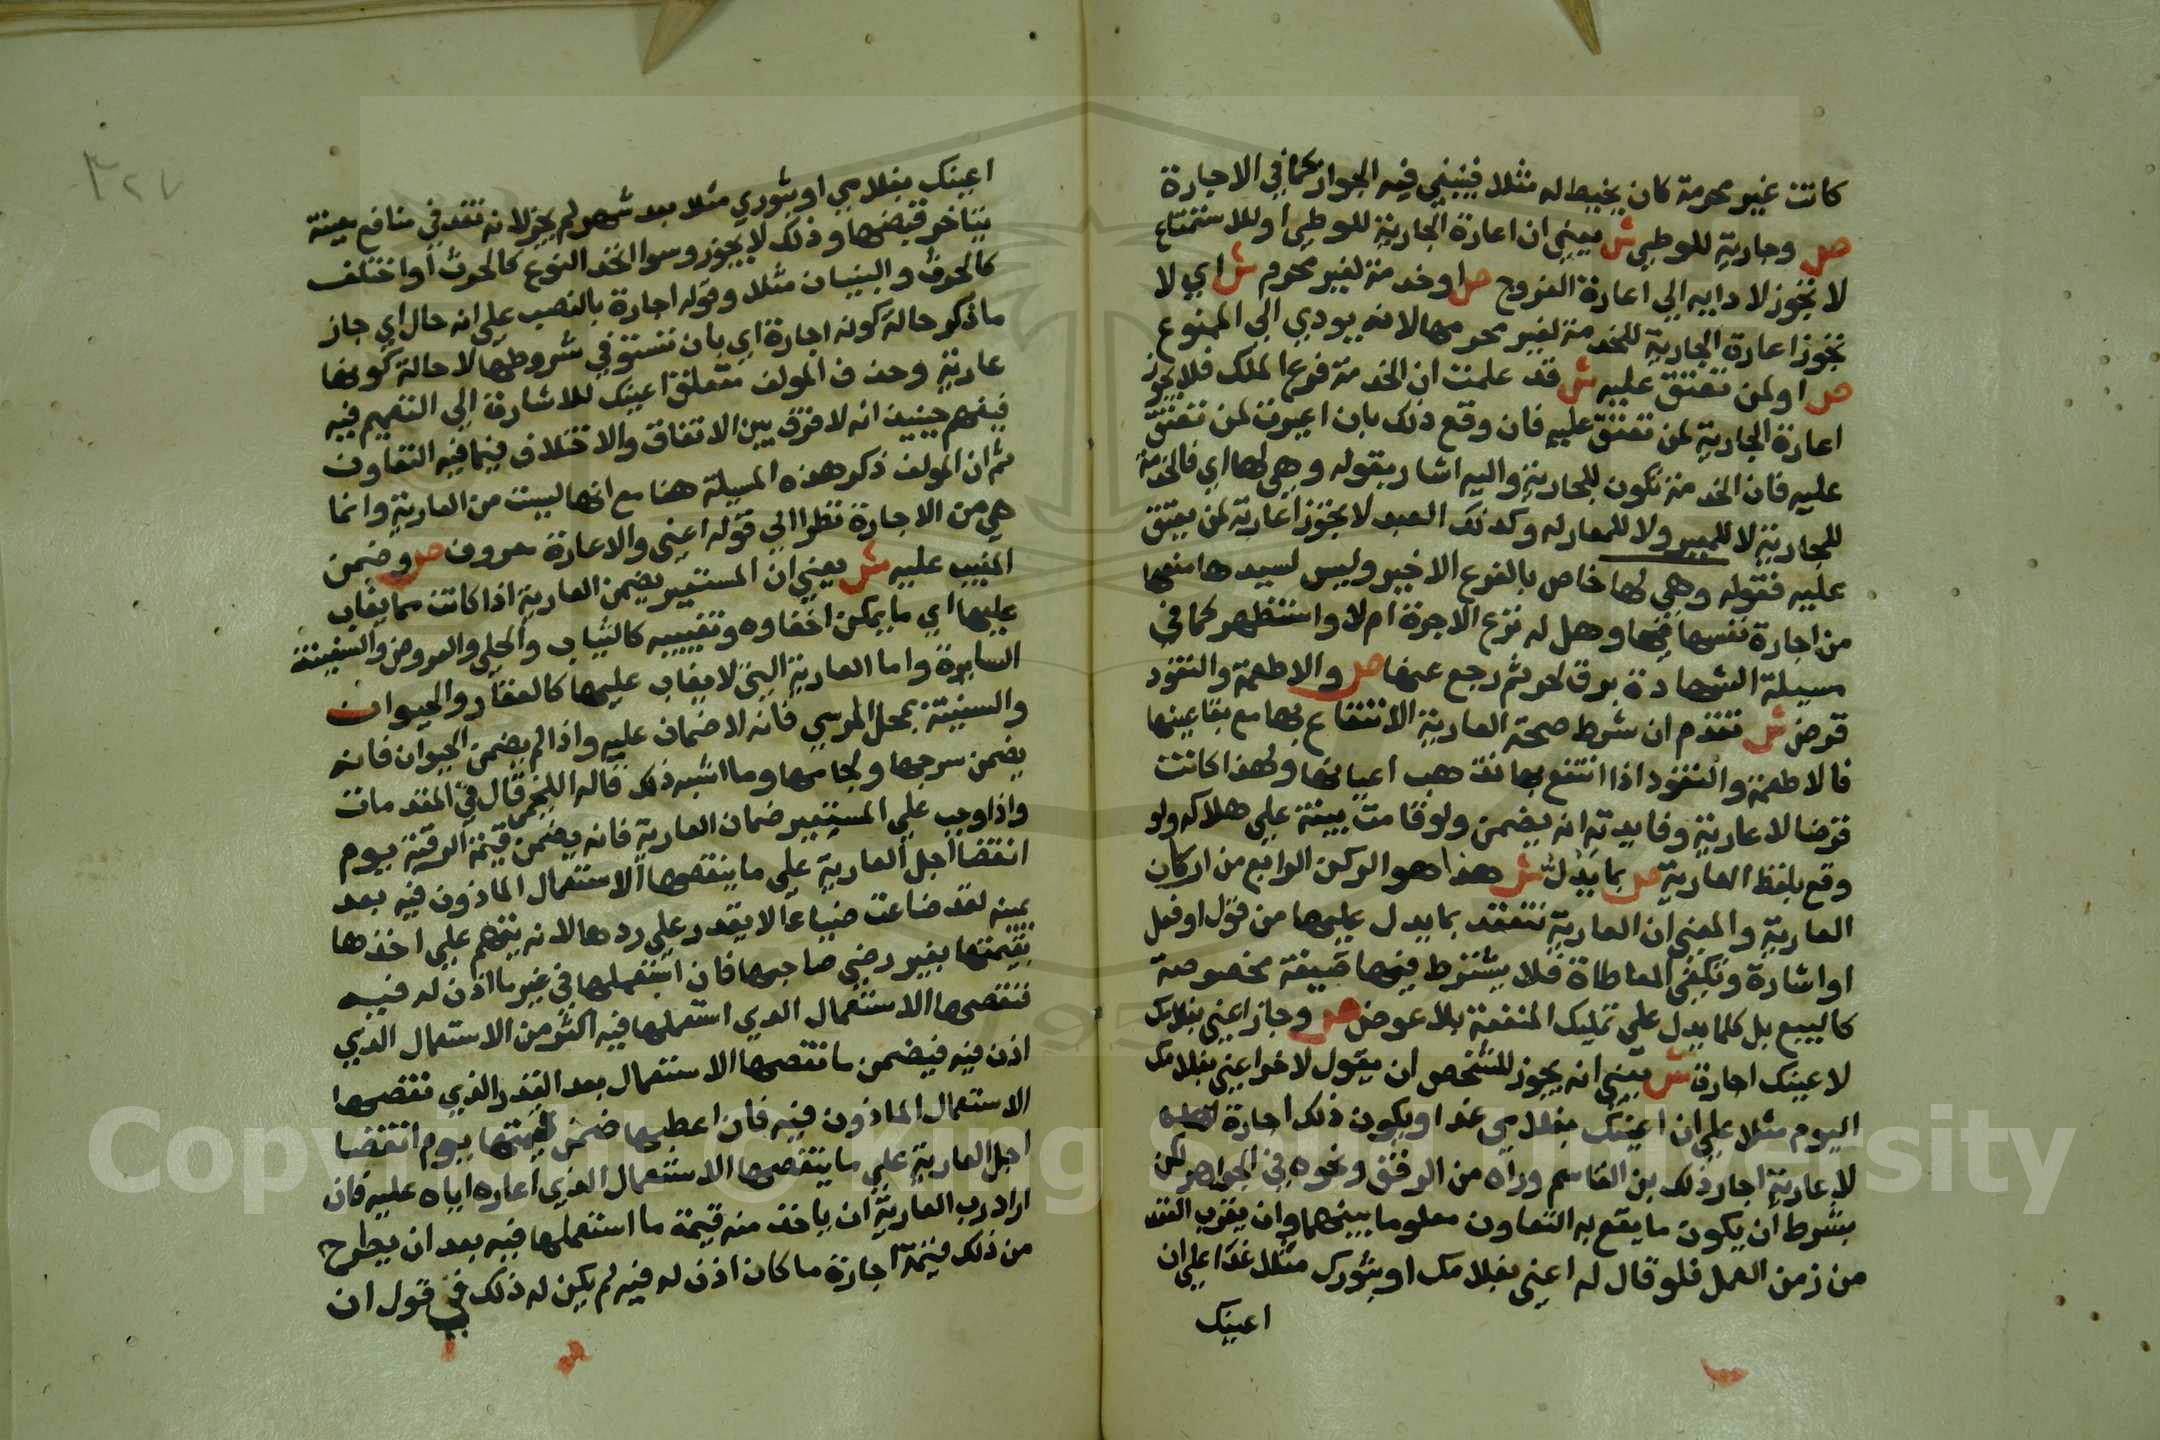 كانت غير محرمة كان يخيط له مثلا فينبغي فيه الجواز كما في الاجارة
ص وجارية للوطي ش يعني ان اعارة الجارية للوطي او للاستمتاع
لا تجوز لا دايه الي اعارة الفروج ص او خدمة لغير محرم ش اي لا
تجوز اعارة الجارية للخدمة لغير محرمها لانه يودي الي الممنوع
ص او لمن تعتق عليه ش قد علمت ان الخدمة فرع الملك فلا يجوز
اعارة الجارية لمن تعتق عليه فان وقع ذلك بان اعيرت لمن تعتق
عليه فان الخدمة تكون للجارية واليه اشار بقوله وهي لها اي فالخدمة
للجارية لا للمعير ولا للمعار له وكذلك العبد لا يجوز اعارته لمن يعتق
عليه فقوله وهي لها خاص بالفرع الاخير وليس لسيدها منعها
من اجارة نفسها فيها وهل له نزع الاجرة ام لا واستظهر كما في
مسيلة الشهادة برق لحر ثم رجع عنها ص والاطعمة والنقود
قرض ش تقدم ان شرط صحة العارية الانتفاع بها مع بقا عينها
فالاطعمة والنقود اذا انتفع بها تذهب اعيانها ولهذا كانت
قرضا لا عارية وفايدته انه يضمن ولو قامت بينة علي هلاكه ولو
وقع بلفظ العارية ص بما يدل ش هذا هو الركن الرابع من اركان
العارية والمعني ان العارية تنعقد بما يدل عليها من قول او فعل
او اشارة وتكفي المعاطاة فلا يشترط فيها صيغة مخصوصة
كالبيع بل كلما يدل علي تمليك المنفعة بلا عوض ص وجاز اعني بغلامك
لاعينك اجارة ش يعني انه يجوز للشخص ان يقول لاخر اعني بغلامك
اليوم مثلا علي ان اعينك بغلامي غدا ويكون ذلك اجارة
لا عارية اجاز ذلك بن القاسم وراه من الرفق ونحوه في الجواهر لكن
بشرط ان يكون ما يقع به التعاون معلوما بينهما وان يقرب العقد
من زمن العمل فلو قال له اعني بغلامك او بثورك مثلا غدا علي ان
اعينك
٣٢٧
اعينك بغلامي او بثوري مثلا بعد شهر لم يجز لانه نقد في منافع معينة
يتاخر قبضها وذلك لا يجوز وسوا اتخذ النوع كالحرث او اختلف
كالحرث والبنيان مثلا وقوله اجارة بالنصب علي انه حال اي جاز
ما ذكر حالة كونه اجارة اي بان تستوفي شروطها لا حالة كونها
عارية وحذف المولف متعلق اعينك للاشارة الي التعميم فيه
فيفهم حينيذ انه لا فرق بين الاتفاق والاختلاف فيما فيه التعاون
ثم ان المولف ذكر هذه المسيلة هنا مع انها ليست من العارية وانما
هي من الاجارة نظرا الي قوله اعني والاعارة معروف ص وضمن
المغيب عليه ش يعني ان المستعير يضمن العارية اذا كانت مما يغاب
عليها اي ما يمكن اخفاوه وتغييبه كالثياب والحلي والعروض والسفينة
السايرة واما العارية التي لا يغاب عليها كالعقار والحيوان
والسفينة بمحل المرسي فانه لا ضمان عليه واذا لم يضمن الحيوان فانه
يضمن سرجها ولجامها وما اشبه ذلك قاله اللخمي قال في المقدمات
واذا وجب علي المستعير ضمان العارية فانه يضمن قيمة الرقبة يوم
انقضا اجل العارية علي ما ينقصها الاستعمال الماذون فيه بعد
يمينه لقد ضاعت ضياعا لا يقدر علي ردها لانه يتهم علي اخذها
بقيمتها بغير رضي صاحبها فان استعملها في غير ما اذن له فيه
فنقصها الاستعمال الذي استعملها فيه اكثر من الاستعمال الذي
اذن فيه فيضمن ما نقصها الاستعمال بعد القدر الذي نقصها
الاستعمال الماذون فيه فان اعطبها ضمن قيمتها يوم انقضا
اجل العارية علي ما ينقصها الاستعمال الذي اعاره اياه عليه فان
اراد رب العارية ان ياخذ منه قيمة ما استعملها فيه بعد ان يطرح
من ذلك قيمة اجارة ما كان اذن له فيه لم يكن له ذلك في قول ان
Copyright © King Saud University